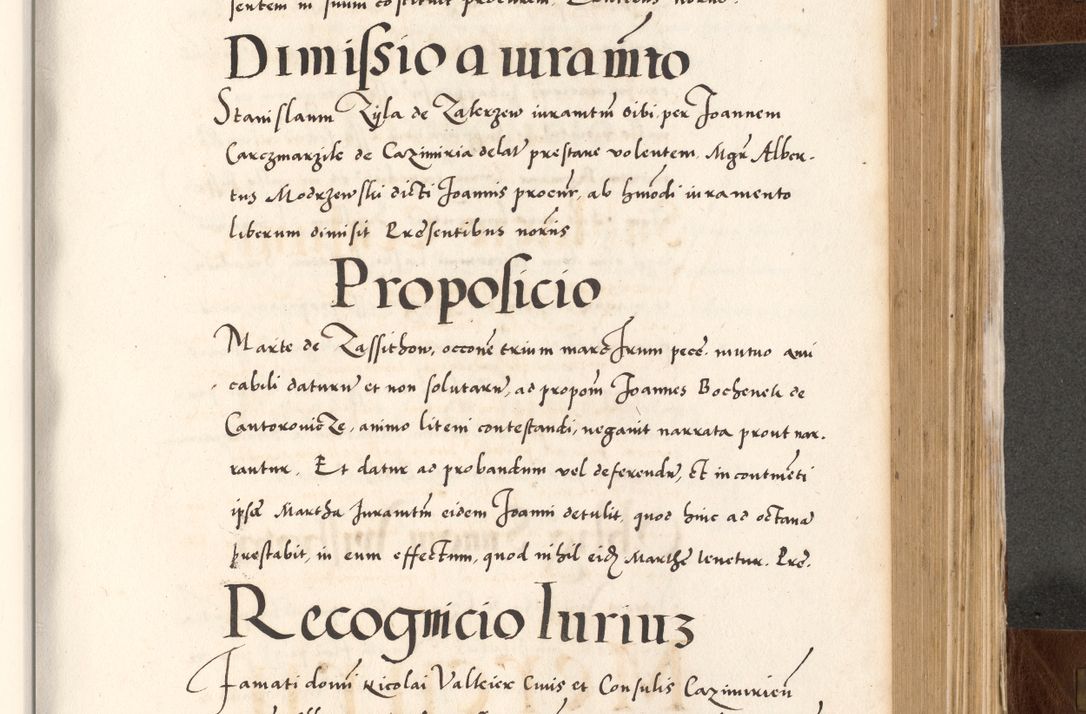 sentem in suum
Dimissio a iuramto
Stanislaum Zyla de Zakrzew iuramtm sibi per Joannem
Carczmarzik de Cazimiria delat prestare volentem, Mgr Alber-
tus Modrzewski dicti Joannis procur, ab hmodi iuramento
liberum dimisit Presentibus norys
Proposicio
Marte de Zassithow, occone trium marc Irum pece. mutuo ami
cabili daturu et non solutaru, ad propom Joannes Bochenek de
Cantorovicze, animo litem contestandi, negavit narrata prout nar-
rantur. Et datur ad probandum vel deferendu, Et incontineti
ipse Martha Juramtm eidem Joanni detulit, quod hinc ad octava
prestabit, in eum effectum, quod nihil eid Marthe tenetur. Pres.
Recognicio Iuriuz
Famati domi Nicolai Valkier Civis et Consulis Cazimirien